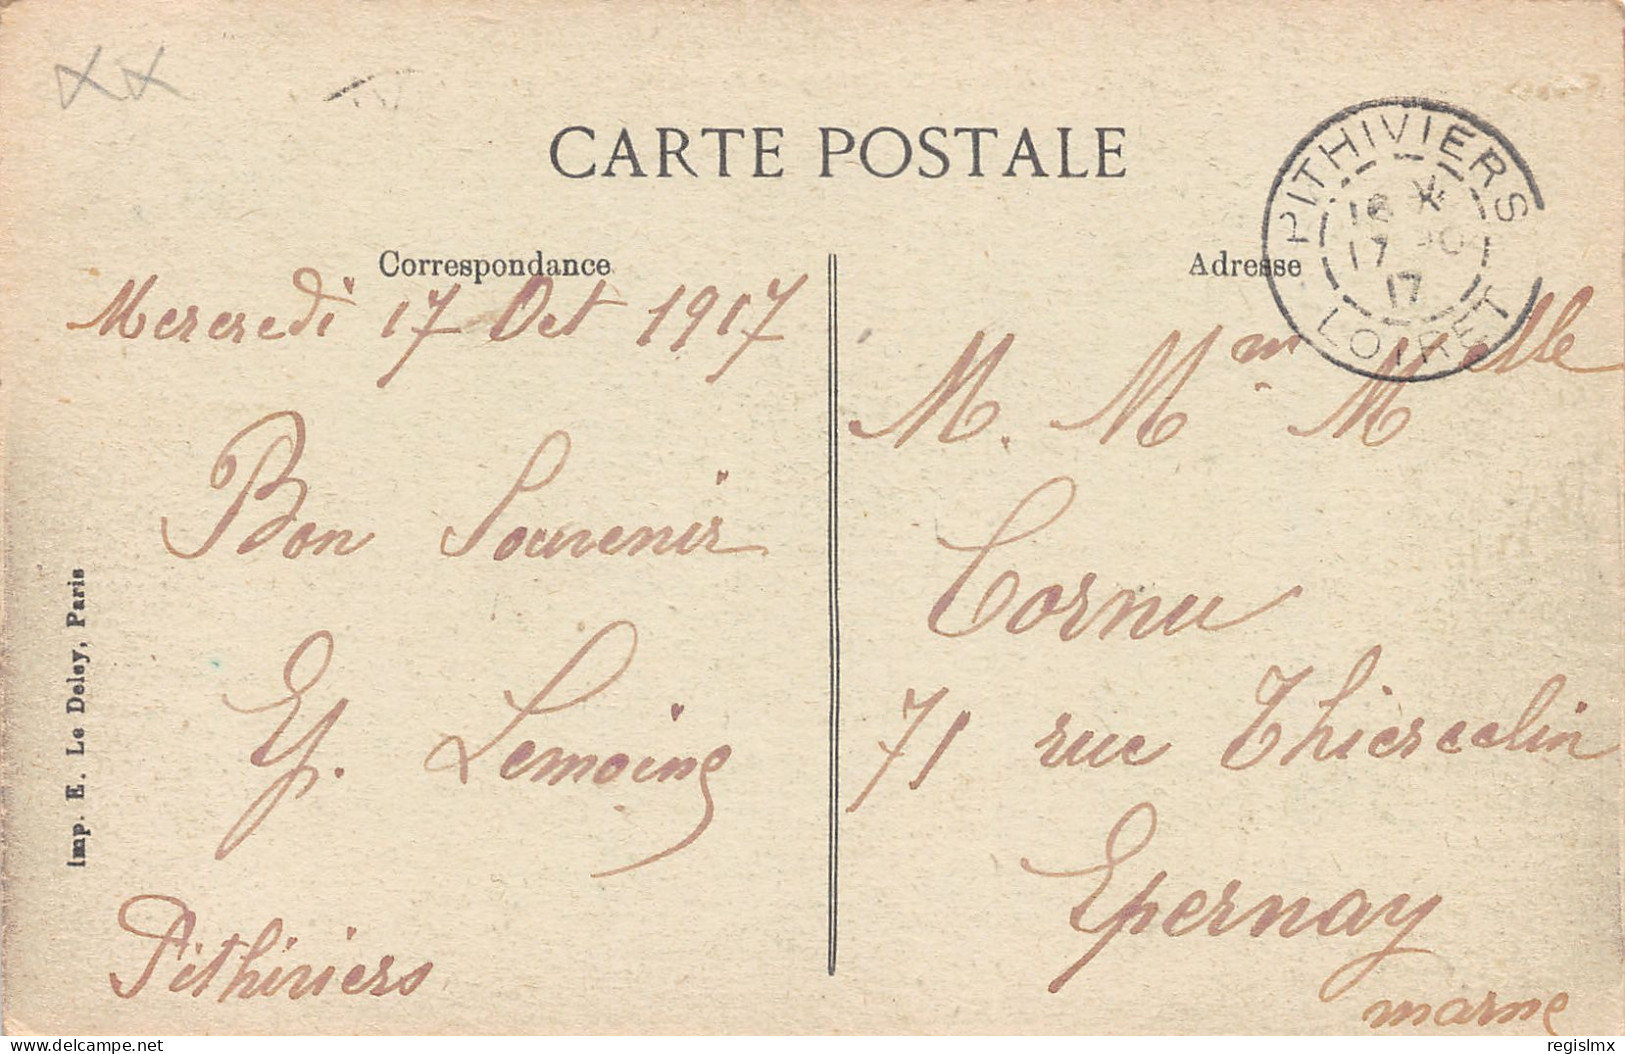 CARTE POSTALE
Correspondance
Mercredi 17 Oct 1917
Bon Souvenir
Lemoine
Pithiviers
Imp. E. Le Deley, Paris
Adresse
PITHIVIERS
17
17
LOIRET
M. Mm Melle
Cornu
71 rue Thiercelin
Epernay
marne
delcampe.net
regislmx